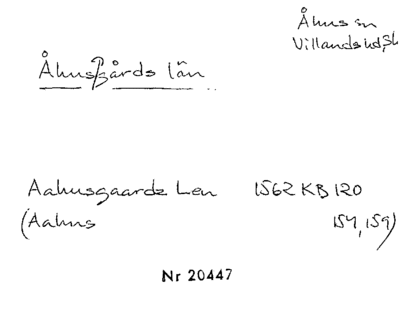 Åhus sn
Villands hd, Sk
Åhusgårds län
Aahusgaards Len 1562 KB 120
(Aahus 154, 159)
Nr 20447